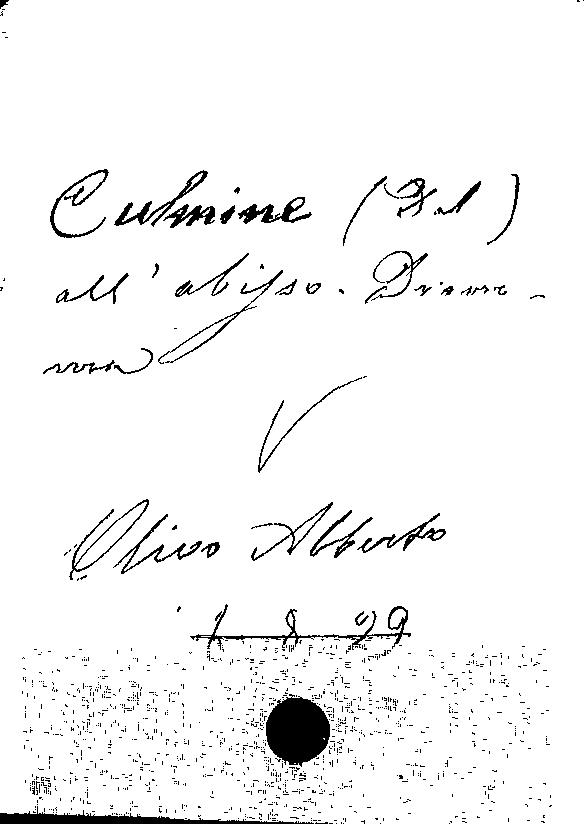 Culmine (Dal)
all'abisso. Dram-
ma
V
Olivo Alberto
1899